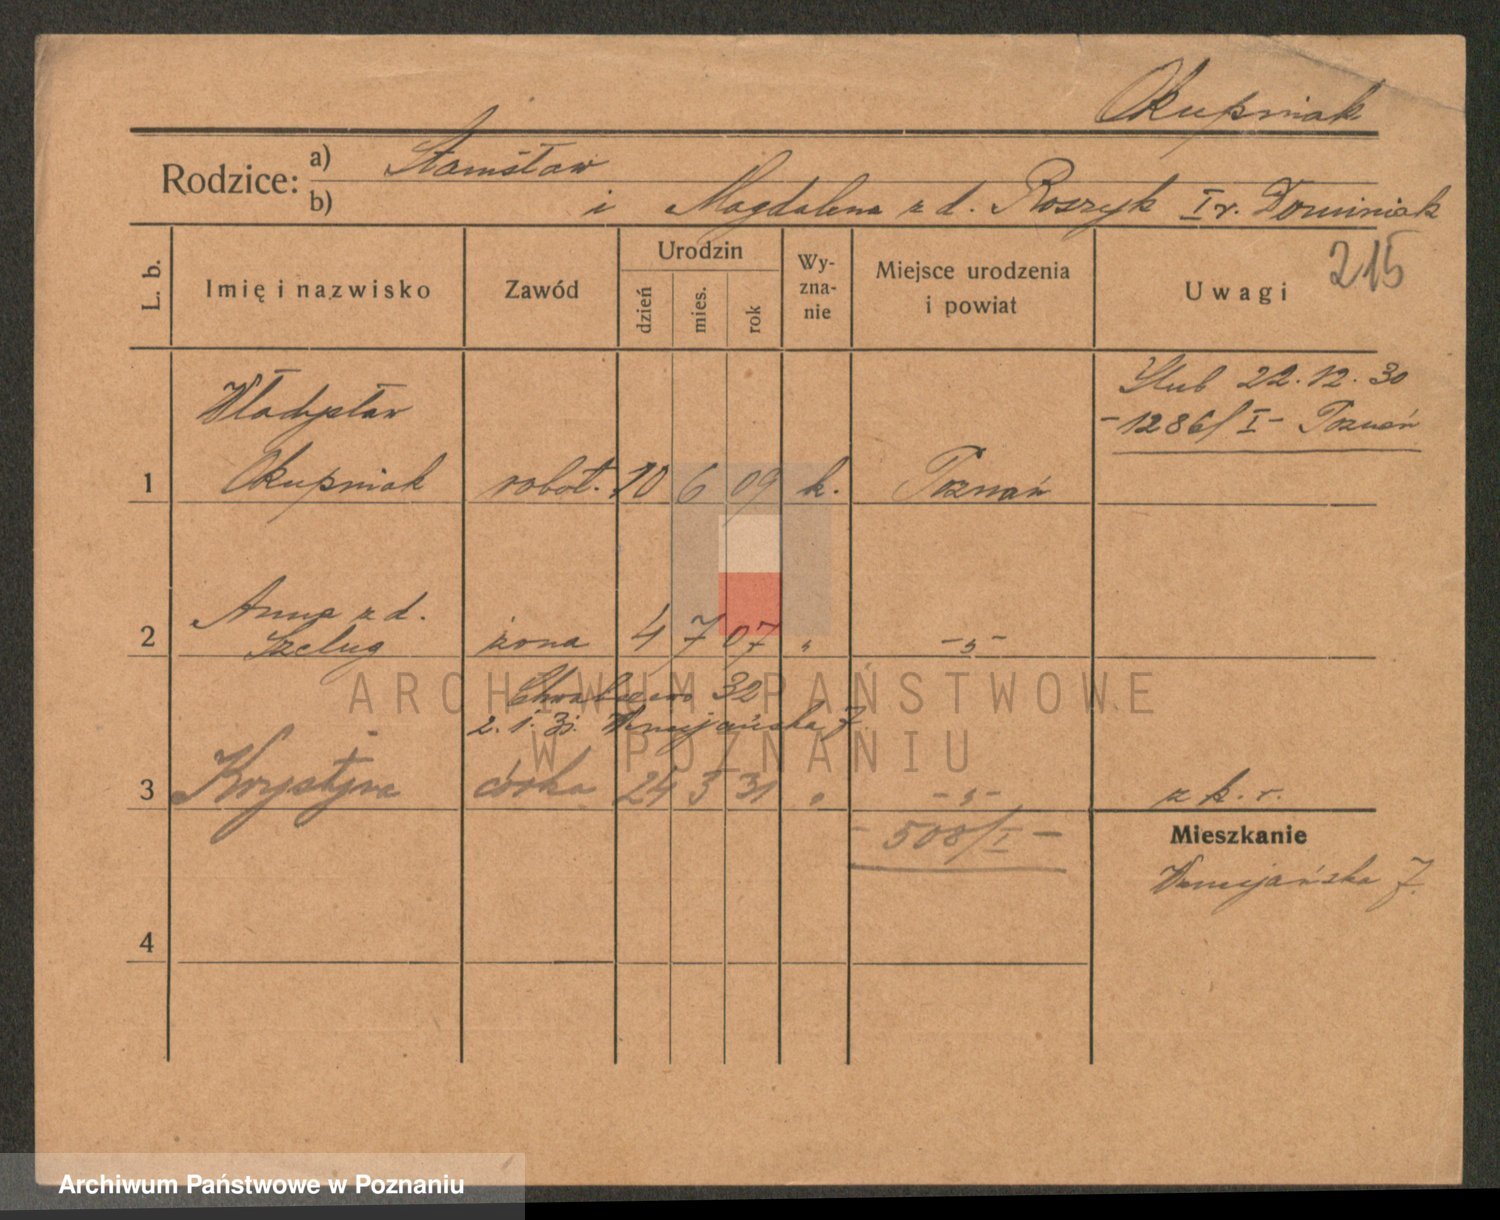 Okupniak
Rodzice: a) Stanisław
b) i Magdalena z d. Roszyk I v. Dominiak
215
L. b. Imię i nazwisko Zawód Urodzin dzień mies. rok Wy-zna-nie Miejsce urodzenia i powiat Uwagi
Ślub 22.12.30
-1286/I- Poznań
Władysław
1 Okupniak robot. 10 6 09 k. Poznań
Anna z d.
2 Szeląg żona 4 7 07 " -"-
32
2.1.31. 7
3 Krystyna córka 24 3 31 " -"- z k. r.
- 508/I -
Mieszkanie
7.
4
ARCHIWUM PAŃSTWOWE
W POZNANIU
Archiwum Państwowe w Poznaniu